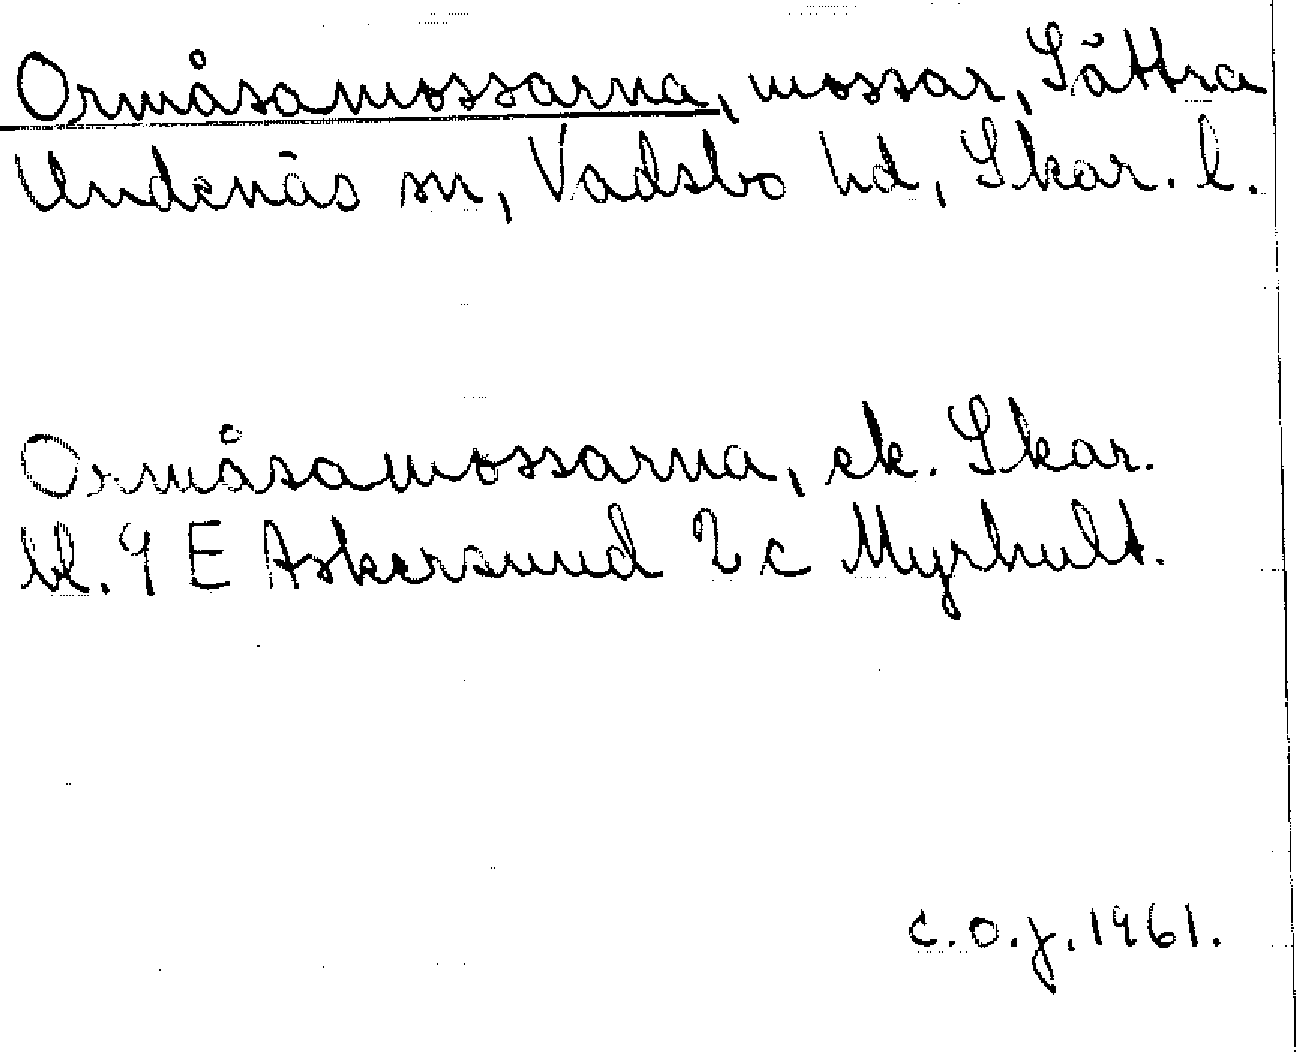 Ormåsamossarna, mossar, Sättra
Undenäs sn, Vadsbo hd, Skar. l.
Ormåsamossarna, ek. Skar.
bl. 9 E Askersund 2 c Myrhult.
C.O.J. 1961.